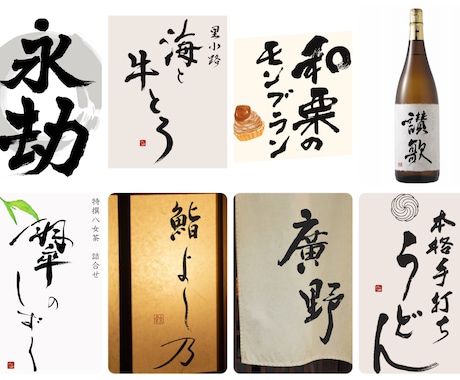 永劫
里小路
海と
牛とろ
和栗の
モンブラン
讃歌
特撰八女茶 詰合せ
翠の
しずく
鮨よし乃
廣野
本格手打ち
うどん